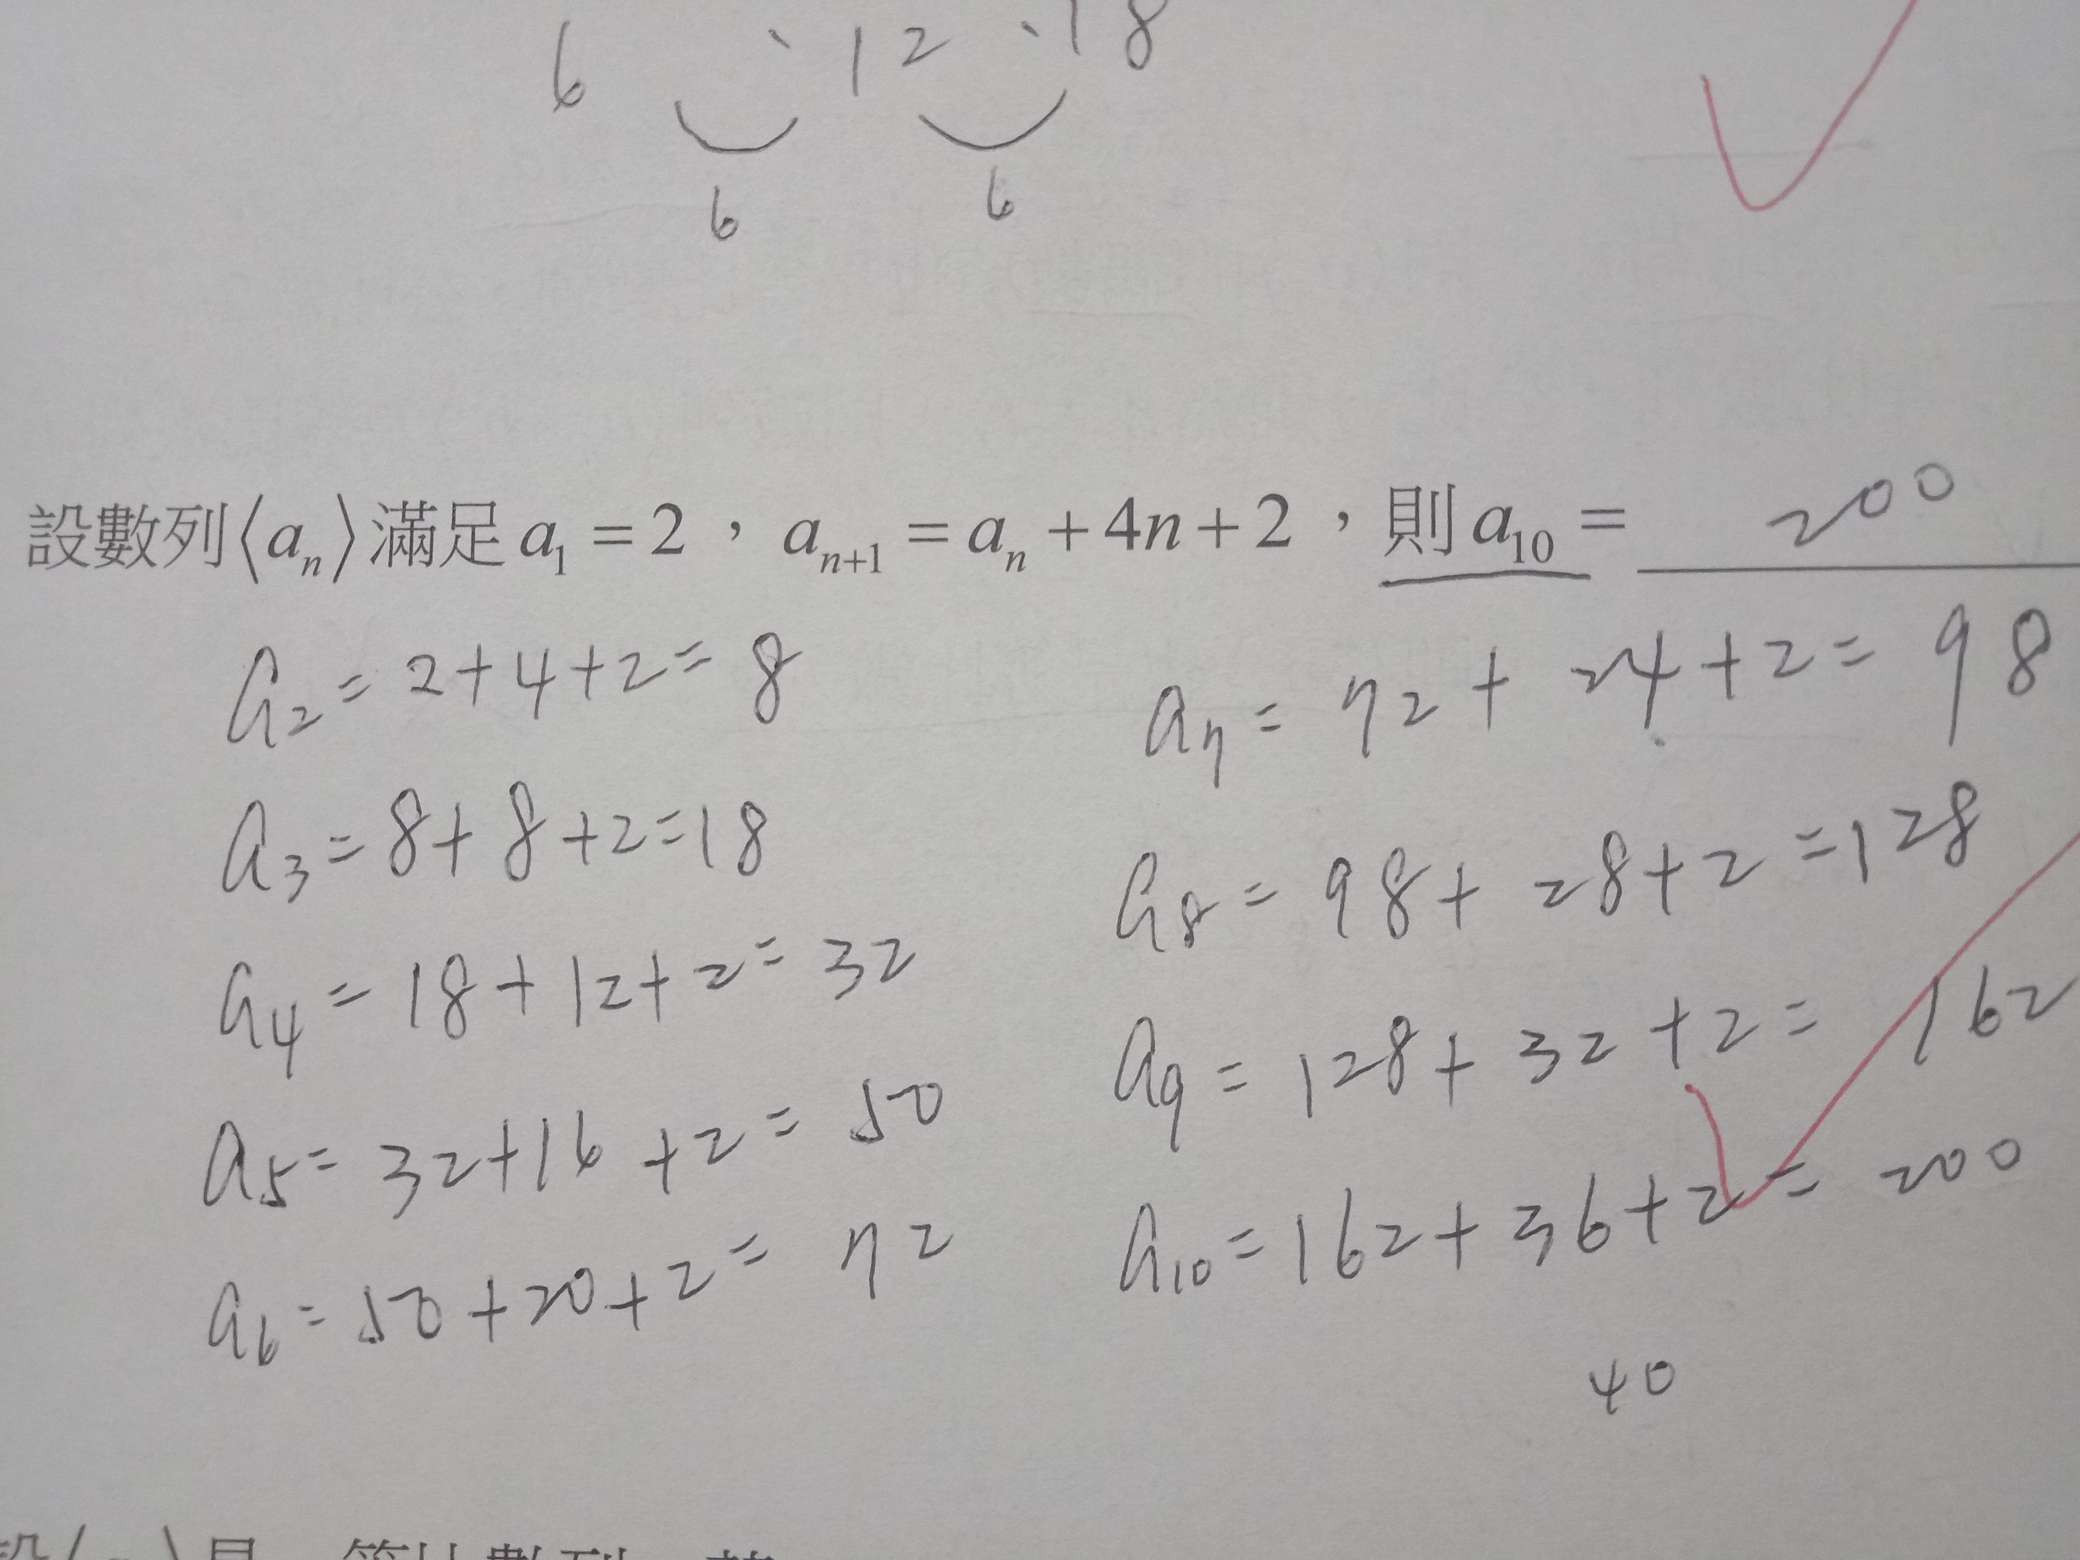 6 、 12 、 18
6 6
設數列⟨aₙ⟩滿足a₁ = 2，aₙ₊₁ = aₙ + 4n + 2，則a₁₀ = 200
a₂ = 2+4+2 = 8
a₃ = 8+8+2=18
a₄ = 18+12+2 = 32
a₅ = 32+16+2 = 50
a₆ = 50+20+2 = 72
a₇ = 72+24+2 = 98
a₈ = 98+28+2 = 128
a₉ = 128+32+2 = 162
a₁₀ = 162+36+2 = 200
40